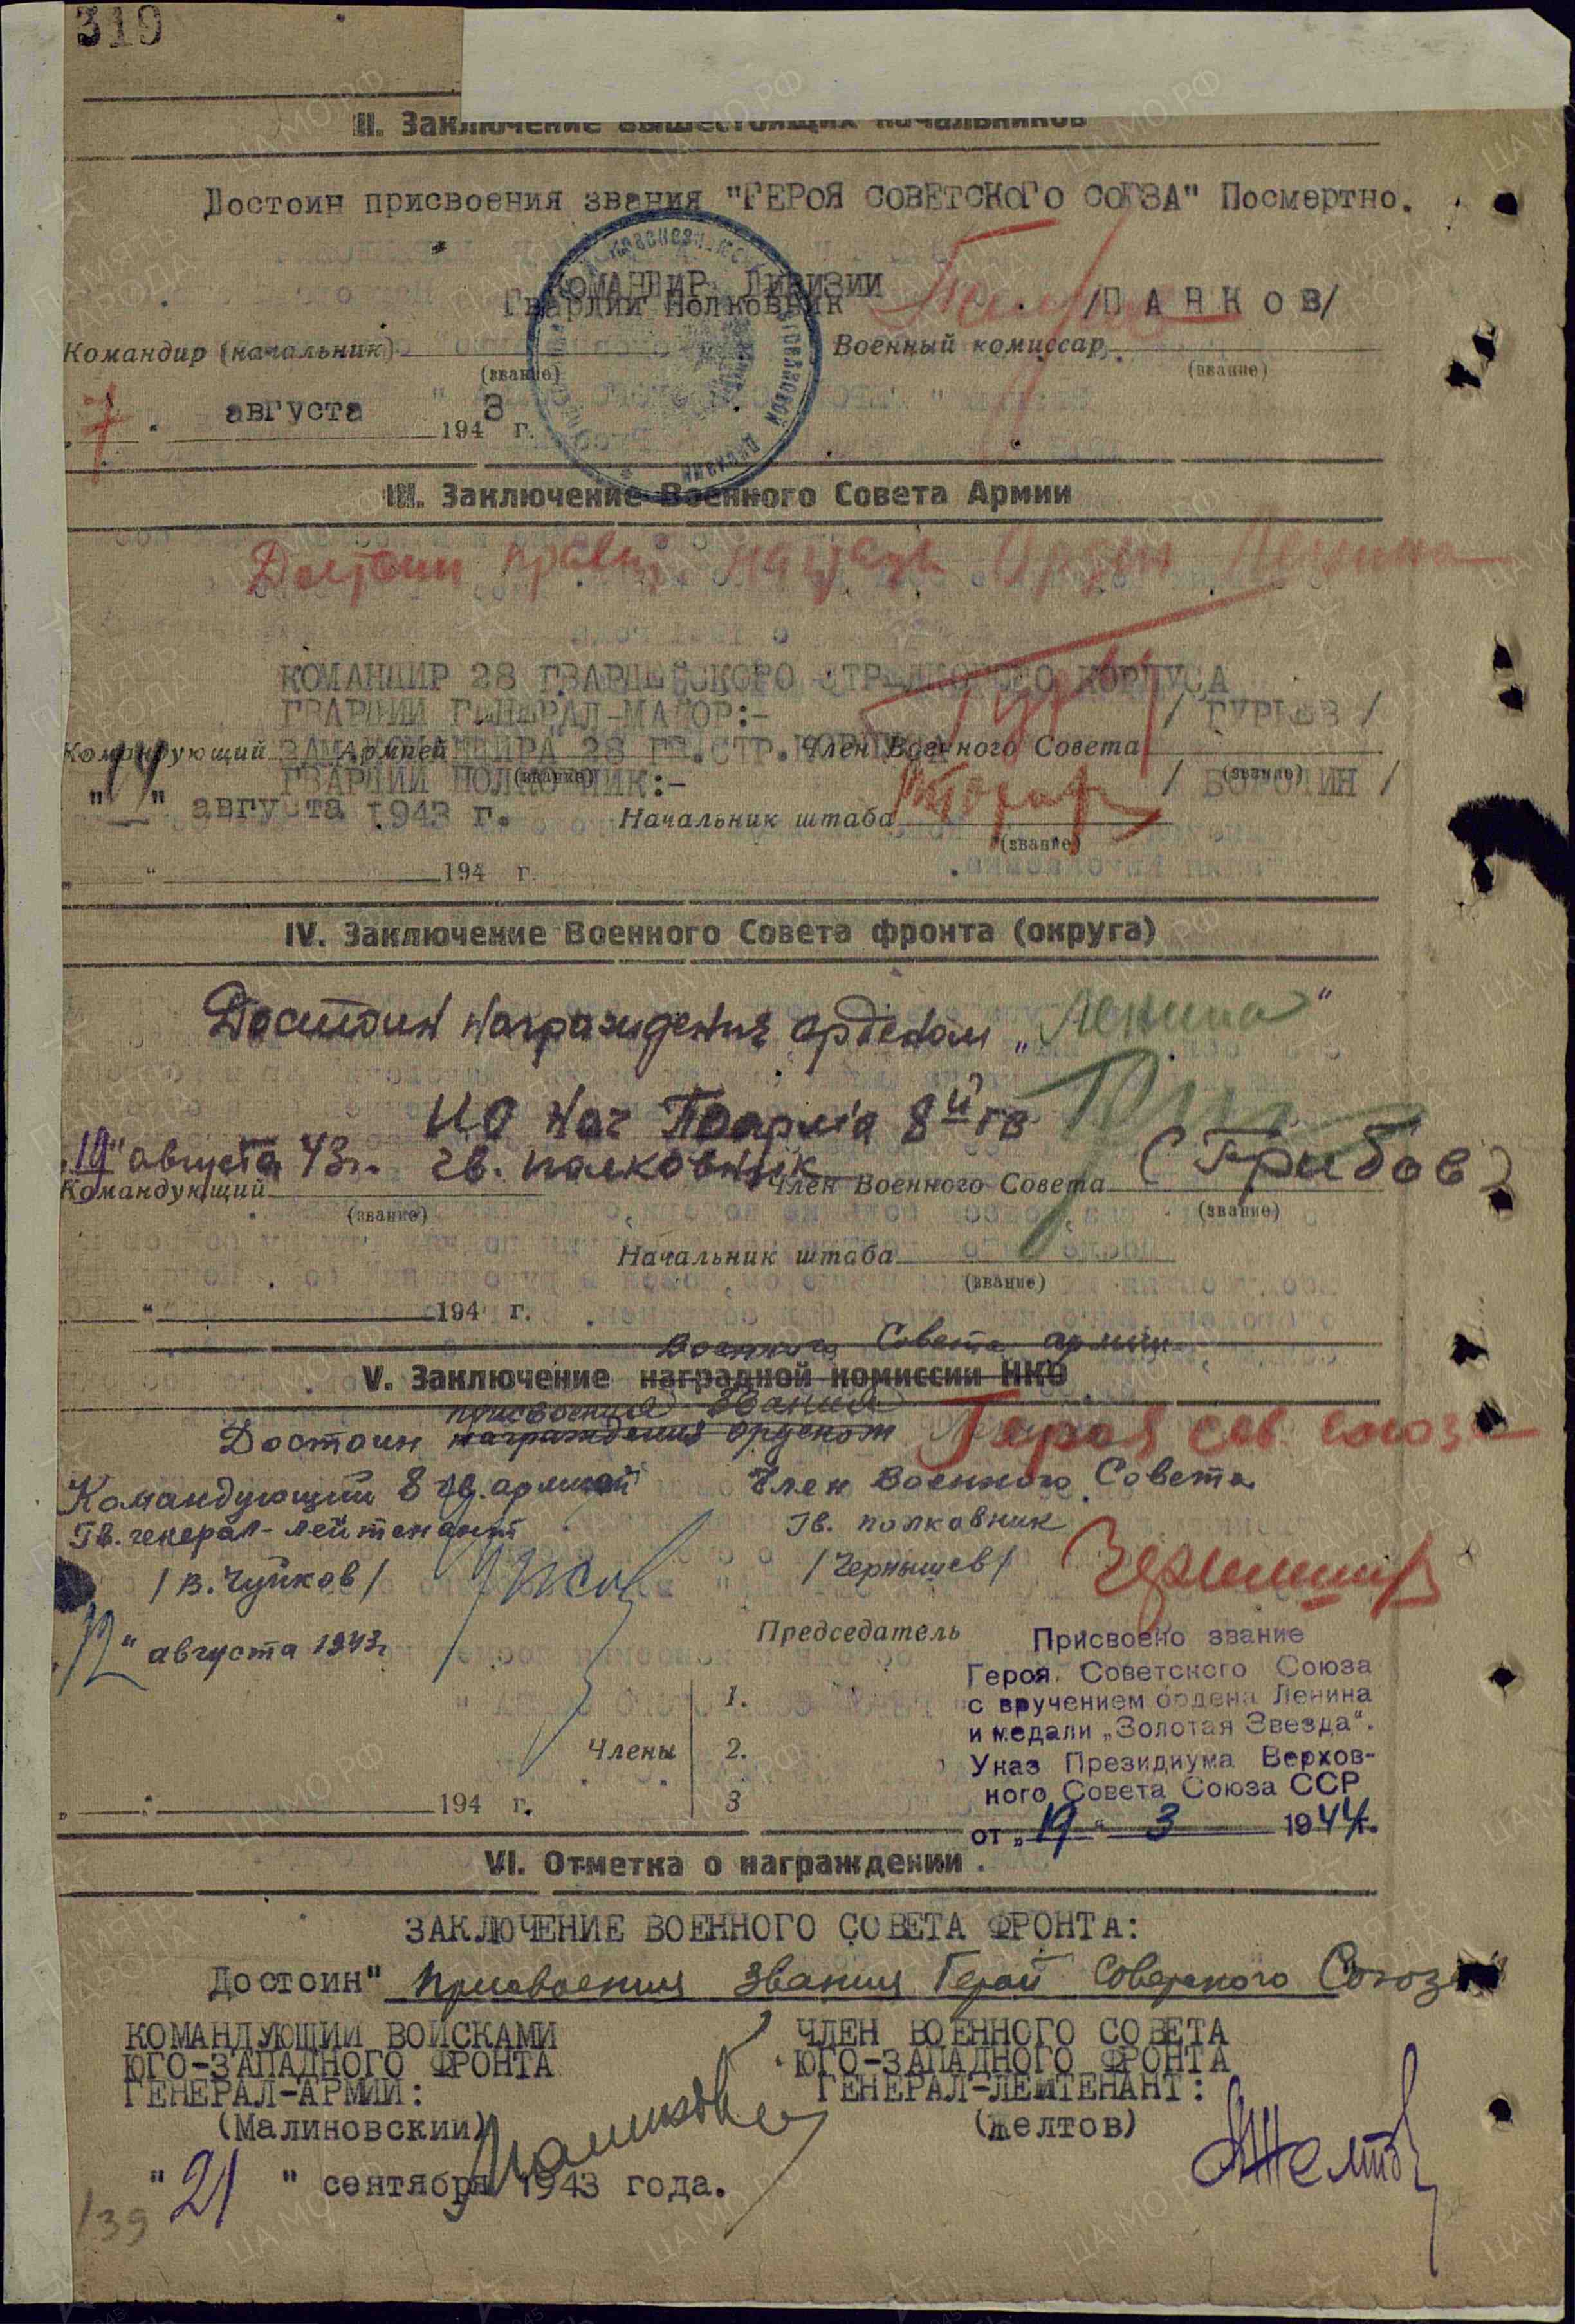 319
II. Заключение вышестоящих начальников
Достоин присвоения звания "ГЕРОЯ СОВЕТСКОГО СОЮЗА" Посмертно.
КОМАНДИР ДИВИЗИИ
Гвардии Полковник /ПАНКОВ/
Командир (начальник) Военный комиссар
(звание) (звание)
7 " августа 1943 г.
III. Заключение Военного Совета Армии
Достоин правит. награды Орден Ленина
КОМАНДИР 28 ГВАРДЕЙСКОГО СТРЕЛКОВОГО КОРПУСА
ГВАРДИИ ГЕНЕРАЛ-МАЙОР:- / ГУРЬЕВ /
Командующий Армией Член Военного Совета
ЗАМ.КОМАНДИРА 28 ГВ.СТР.КОРПУСА
(звание) (звание)
ГВАРДИИ ПОЛКОВНИК:- / БОРОДИН /
"14" августа 1943 г. Начальник штаба
(звание)
" 194 г.
IV. Заключение Военного Совета фронта (округа)
Достоин награждения орденом „Ленина"
ИО Нач 8й гв
19" августа 43г. гв. полковник (Грибов)
Командующий Член Военного Совета
(звание) (звание)
Начальник штаба
(звание)
" 194 г.
Военного Совета армии
V. Заключение наградной комиссии НКО
присвоения звания
Достоин награждения орденом Героя сов. союза
Командующий 8 гв. армией Член Военного Совета
Гв. генерал-лейтенант Гв. полковник
/В. Чуйков/ /Чернышев/
12" августа 1943г
Председатель
Присвоено звание
Героя Советского Союза
с вручением ордена Ленина
и медали „Золотая Звезда".
Указ Президиума Верхов-
ного Совета Союза ССР
от „19" 3 1944г.
1.
Члены 2.
3
" 194 г.
VI. Отметка о награждении
ЗАКЛЮЧЕНИЕ ВОЕННОГО СОВЕТА ФРОНТА:
Достоин" присвоения звания Герой Советского Союза
КОМАНДУЮЩИЙ ВОЙСКАМИ ЧЛЕН ВОЕННОГО СОВЕТА
ЮГО-ЗАПАДНОГО ФРОНТА ЮГО-ЗАПАДНОГО ФРОНТА
ГЕНЕРАЛ-АРМИИ: ГЕНЕРАЛ-ЛЕЙТЕНАНТ:
(Малиновский) (Желтов)
"21" сентября 1943 года.
139